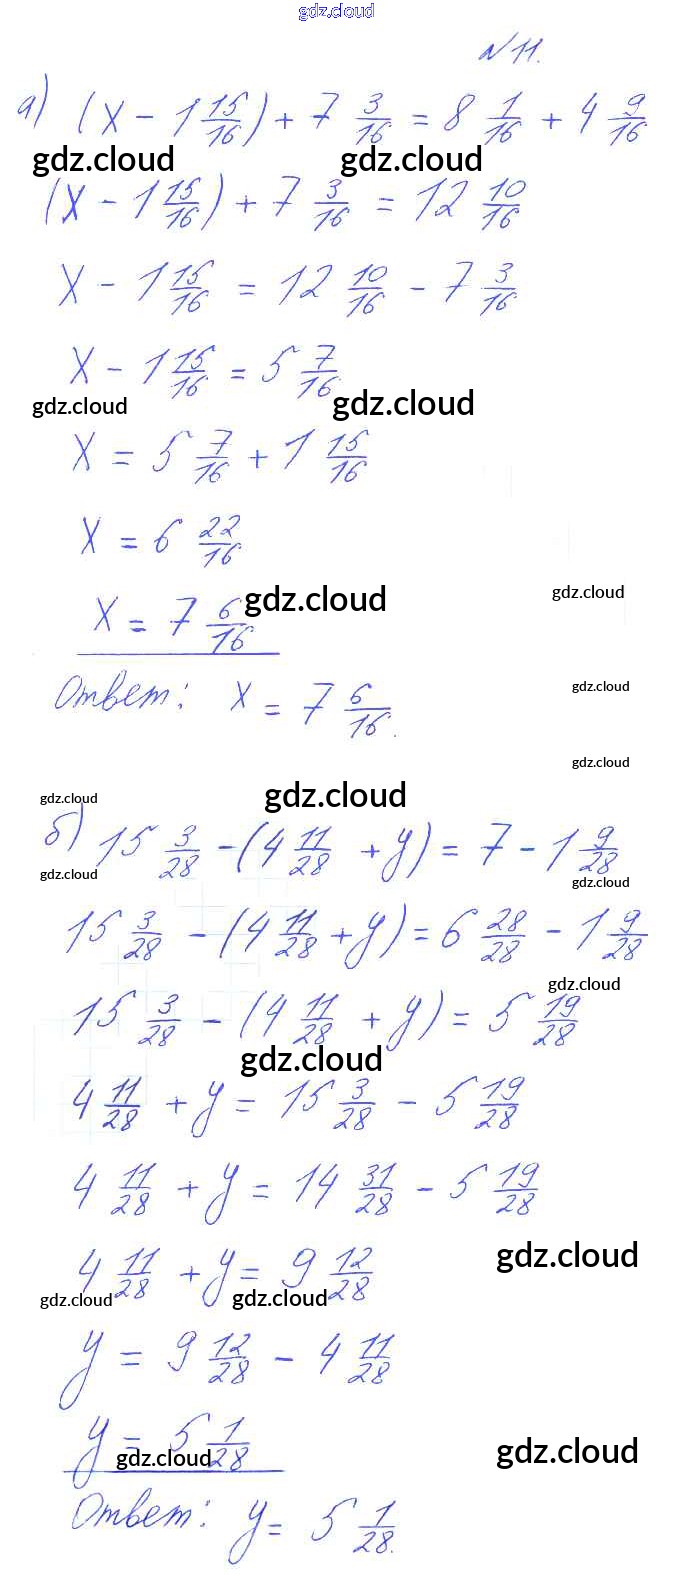 gdz.cloud
№11.
а) (x - 1 15/16) + 7 3/16 = 8 1/16 + 4 9/16
gdz.cloud gdz.cloud
(x - 1 15/16) + 7 3/16 = 12 10/16
x - 1 15/16 = 12 10/16 - 7 3/16
x - 1 15/16 = 5 7/16
gdz.cloud gdz.cloud
x = 5 7/16 + 1 15/16
x = 6 22/16
gdz.cloud gdz.cloud
x = 7 6/16
Ответ: x = 7 6/16.
gdz.cloud
gdz.cloud
gdz.cloud gdz.cloud
б) 15 3/28 - (4 11/28 + y) = 7 - 1 9/28
gdz.cloud gdz.cloud
15 3/28 - (4 11/28 + y) = 6 28/28 - 1 9/28
gdz.cloud
15 3/28 - (4 11/28 + y) = 5 19/28
gdz.cloud
4 11/28 + y = 15 3/28 - 5 19/28
4 11/28 + y = 14 31/28 - 5 19/28
gdz.cloud
4 11/28 + y = 9 12/28
gdz.cloud gdz.cloud
y = 9 12/28 - 4 11/28
y = 5 1/28
gdz.cloud gdz.cloud
Ответ: y = 5 1/28.